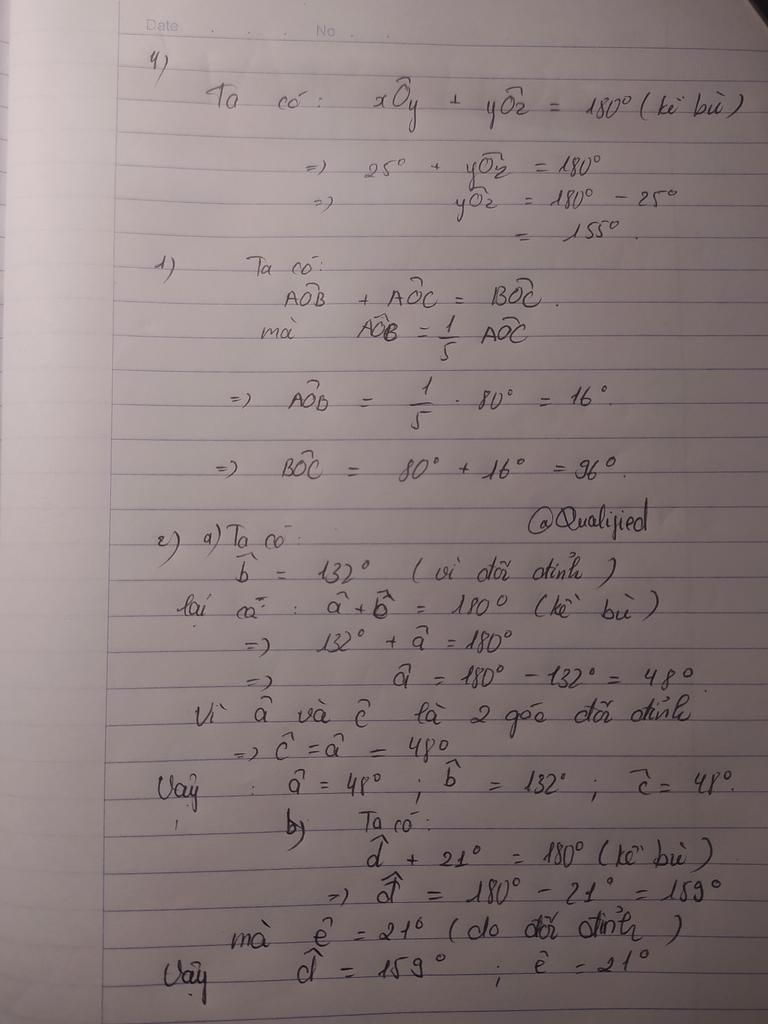 Date . . . No . .
4)
Ta có: xÔy + yÔz = 180° (kề bù)
=> 25° + yÔz = 180°
=> yÔz = 180° - 25°
= 155°.
1) Ta có:
AÔB + AÔC = BÔC.
mà AÔB = 1/5 AÔC
=> AÔB = 1/5 . 80° = 16°.
=> BÔC = 80° + 16° = 96°.
@Qualified
2) a) Ta có:
b̂ = 132° (vì đối đỉnh)
lại có: â + b̂ = 180° (kề bù)
=> 132° + â = 180°
=> â = 180° - 132° = 48°.
Vì â và ĉ là 2 góc đối đỉnh
=> ĉ = â = 48°
Vậy: â = 48° ; b̂ = 132° ; ĉ = 48°.
b) Ta có:
d̂ + 21° = 180° (kề bù)
=> d̂ = 180° - 21° = 159°
mà ê = 21° (do đối đỉnh)
Vậy d̂ = 159° ; ê = 21°